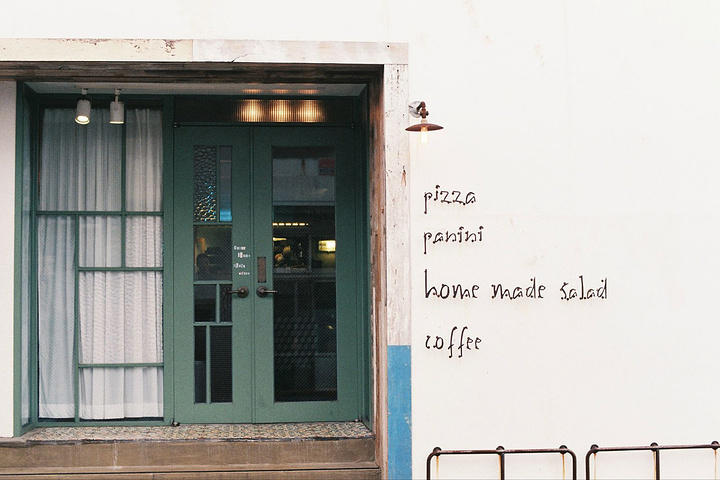 pizza
panini
home made salad
coffee